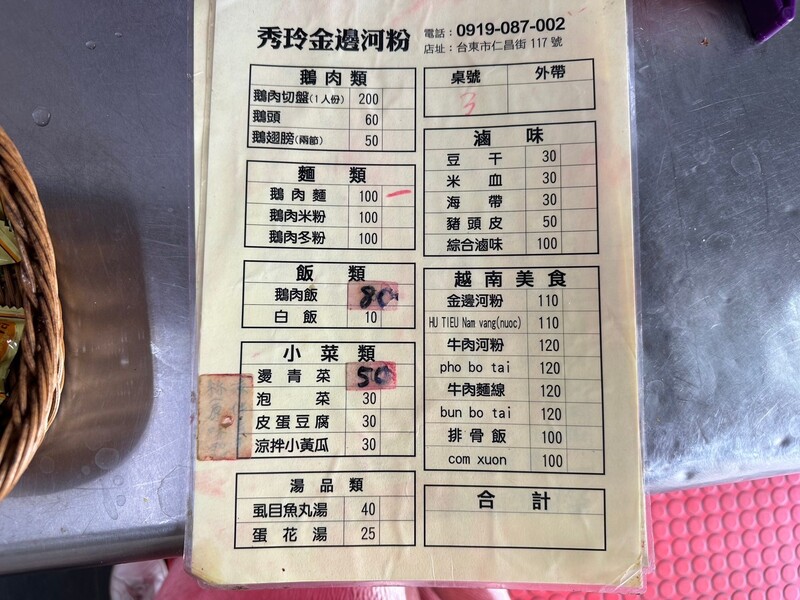 秀玲金邊河粉
電話：0919-087-002
店址：台東市仁昌街117號
鵝肉類
鵝肉切盤(1人份) 200
鵝頭 60
鵝翅膀(兩節) 50
麵類
鵝肉麵 100
鵝肉米粉 100
鵝肉冬粉 100
飯類
鵝肉飯 80
白飯 10
小菜類
燙青菜 50
泡菜 30
皮蛋豆腐 30
涼拌小黃瓜 30
湯品類
虱目魚丸湯 40
蛋花湯 25
桌號 外帶
3
滷味
豆干 30
米血 30
海帶 30
豬頭皮 50
綜合滷味 100
越南美食
金邊河粉 110
HU TIEU Nam vang(nuoc) 110
牛肉河粉 120
pho bo tai 120
牛肉麵線 120
bun bo tai 120
排骨飯 100
com xuon 100
合計